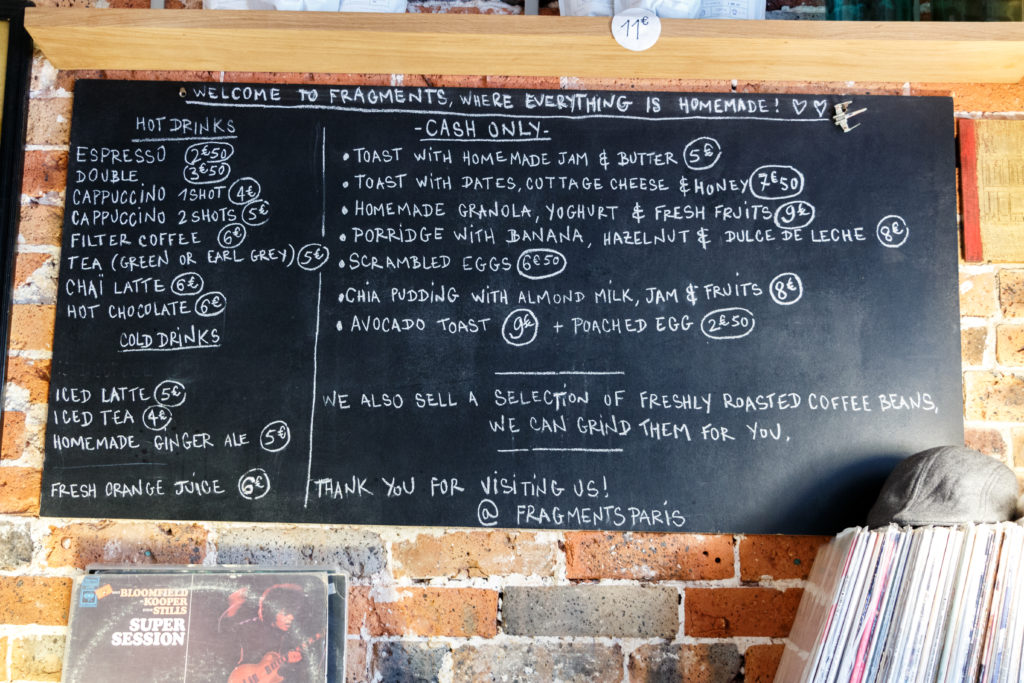 11€
WELCOME TO FRAGMENTS, WHERE EVERYTHING IS HOMEMADE! ♡ ♡
HOT DRINKS
ESPRESSO 2€50
DOUBLE 3€50
CAPPUCCINO 1SHOT 4€
CAPPUCCINO 2SHOTS 5€
FILTER COFFEE 6€
TEA (GREEN OR EARL GREY) 5€
CHAI LATTE 6€
HOT CHOCOLATE 6€
COLD DRINKS
ICED LATTE 5€
ICED TEA 4€
HOMEMADE GINGER ALE 5€
FRESH ORANGE JUICE 6€
-CASH ONLY-
• TOAST WITH HOMEMADE JAM & BUTTER 5€
• TOAST WITH DATES, COTTAGE CHEESE & HONEY 7€50
• HOMEMADE GRANOLA, YOGHURT & FRESH FRUITS 9€
• PORRIDGE WITH BANANA, HAZELNUT & DULCE DE LECHE 8€
• SCRAMBLED EGGS 6€50
• CHIA PUDDING WITH ALMOND MILK, JAM & FRUITS 8€
• AVOCADO TOAST 9€ + POACHED EGG 2€50
WE ALSO SELL A SELECTION OF FRESHLY ROASTED COFFEE BEANS,
WE CAN GRIND THEM FOR YOU.
THANK YOU FOR VISITING US!
@ FRAGMENTSPARIS
BLOOMFIELD
KOOPER
STILLS
SUPER
SESSION